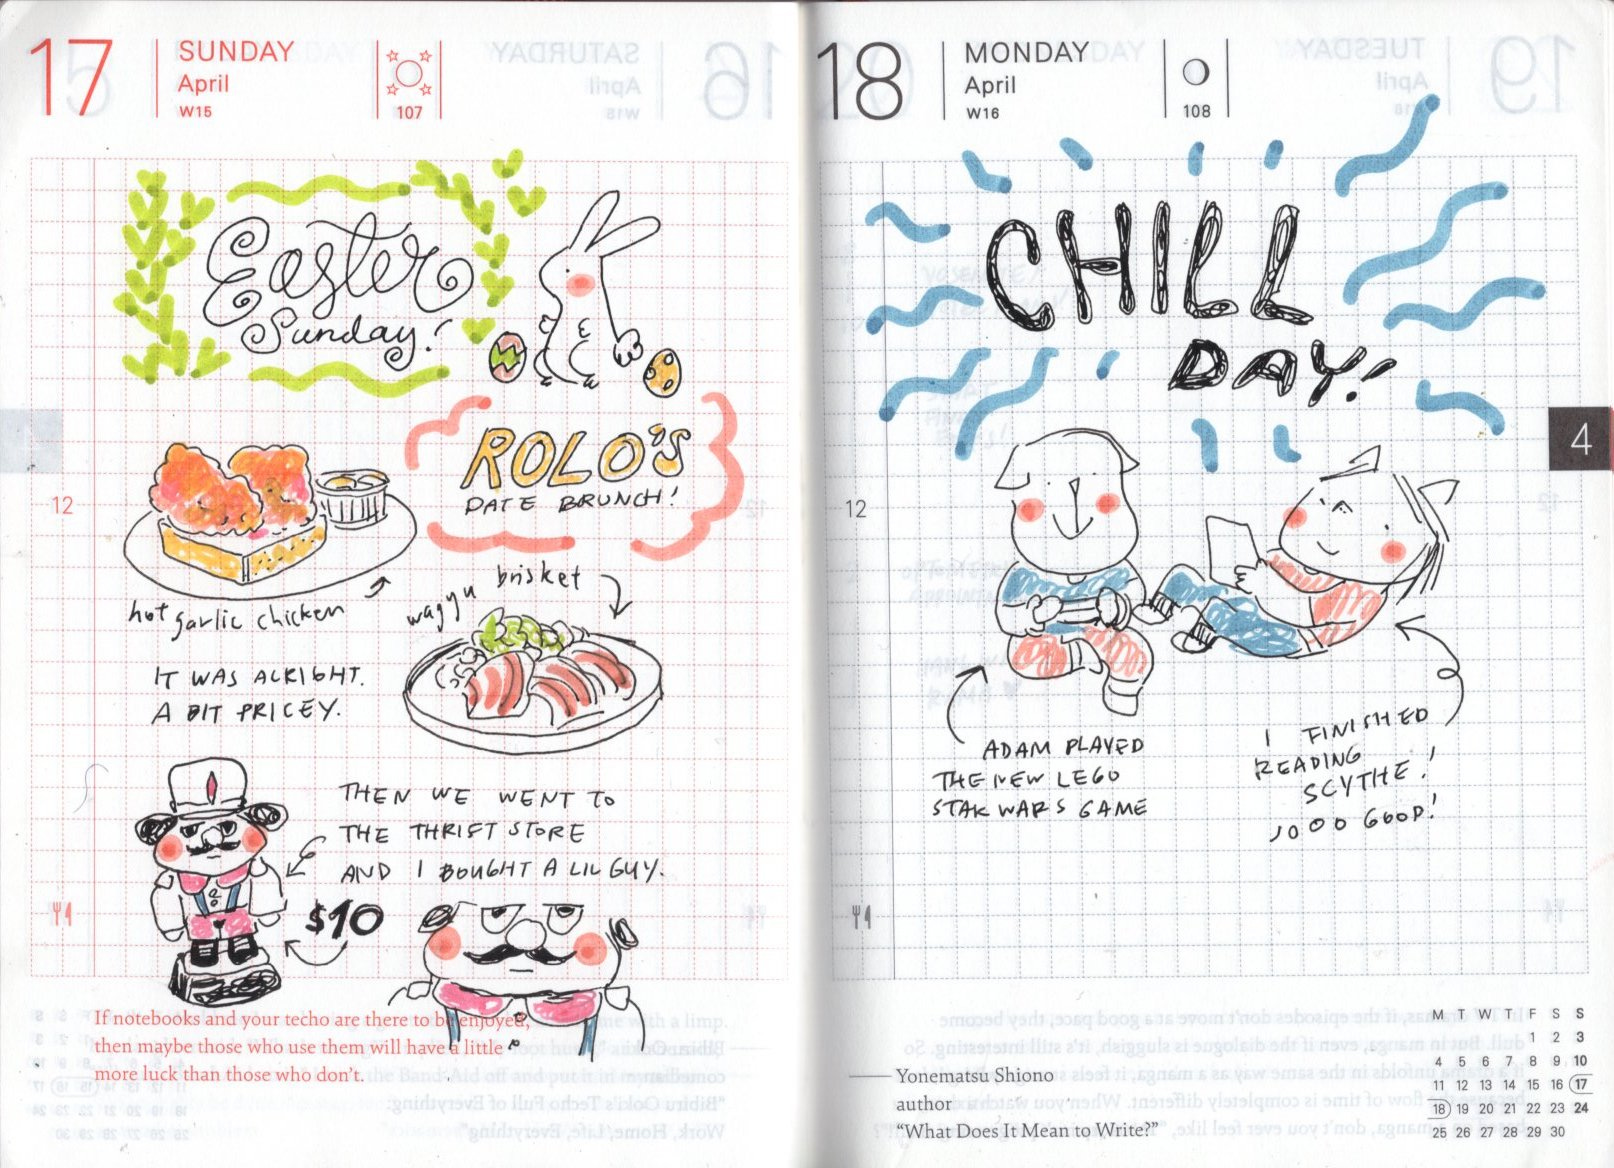 17
SUNDAY
April
W15
107
Easter
Sunday!
ROLO'S
DATE BRUNCH!
12
hot garlic chicken
wagyu brisket
IT WAS ALRIGHT.
A BIT PRICEY.
THEN WE WENT TO
THE THRIFT STORE
AND I BOUGHT A LIL GUY.
$10
If notebooks and your techo are there to be enjoyed,
then maybe those who use them will have a little
more luck than those who don't.
18
MONDAY
April
W16
108
CHILL
DAY!
4
12
ADAM PLAYED
THE NEW LEGO
STAR WARS GAME
I FINISHED
READING
SCYTHE!
SOOO GOOD!
Yonematsu Shiono
author
"What Does It Mean to Write?"
M T W T F S S
1 2 3
4 5 6 7 8 9 10
11 12 13 14 15 16 17
18 19 20 21 22 23 24
25 26 27 28 29 30